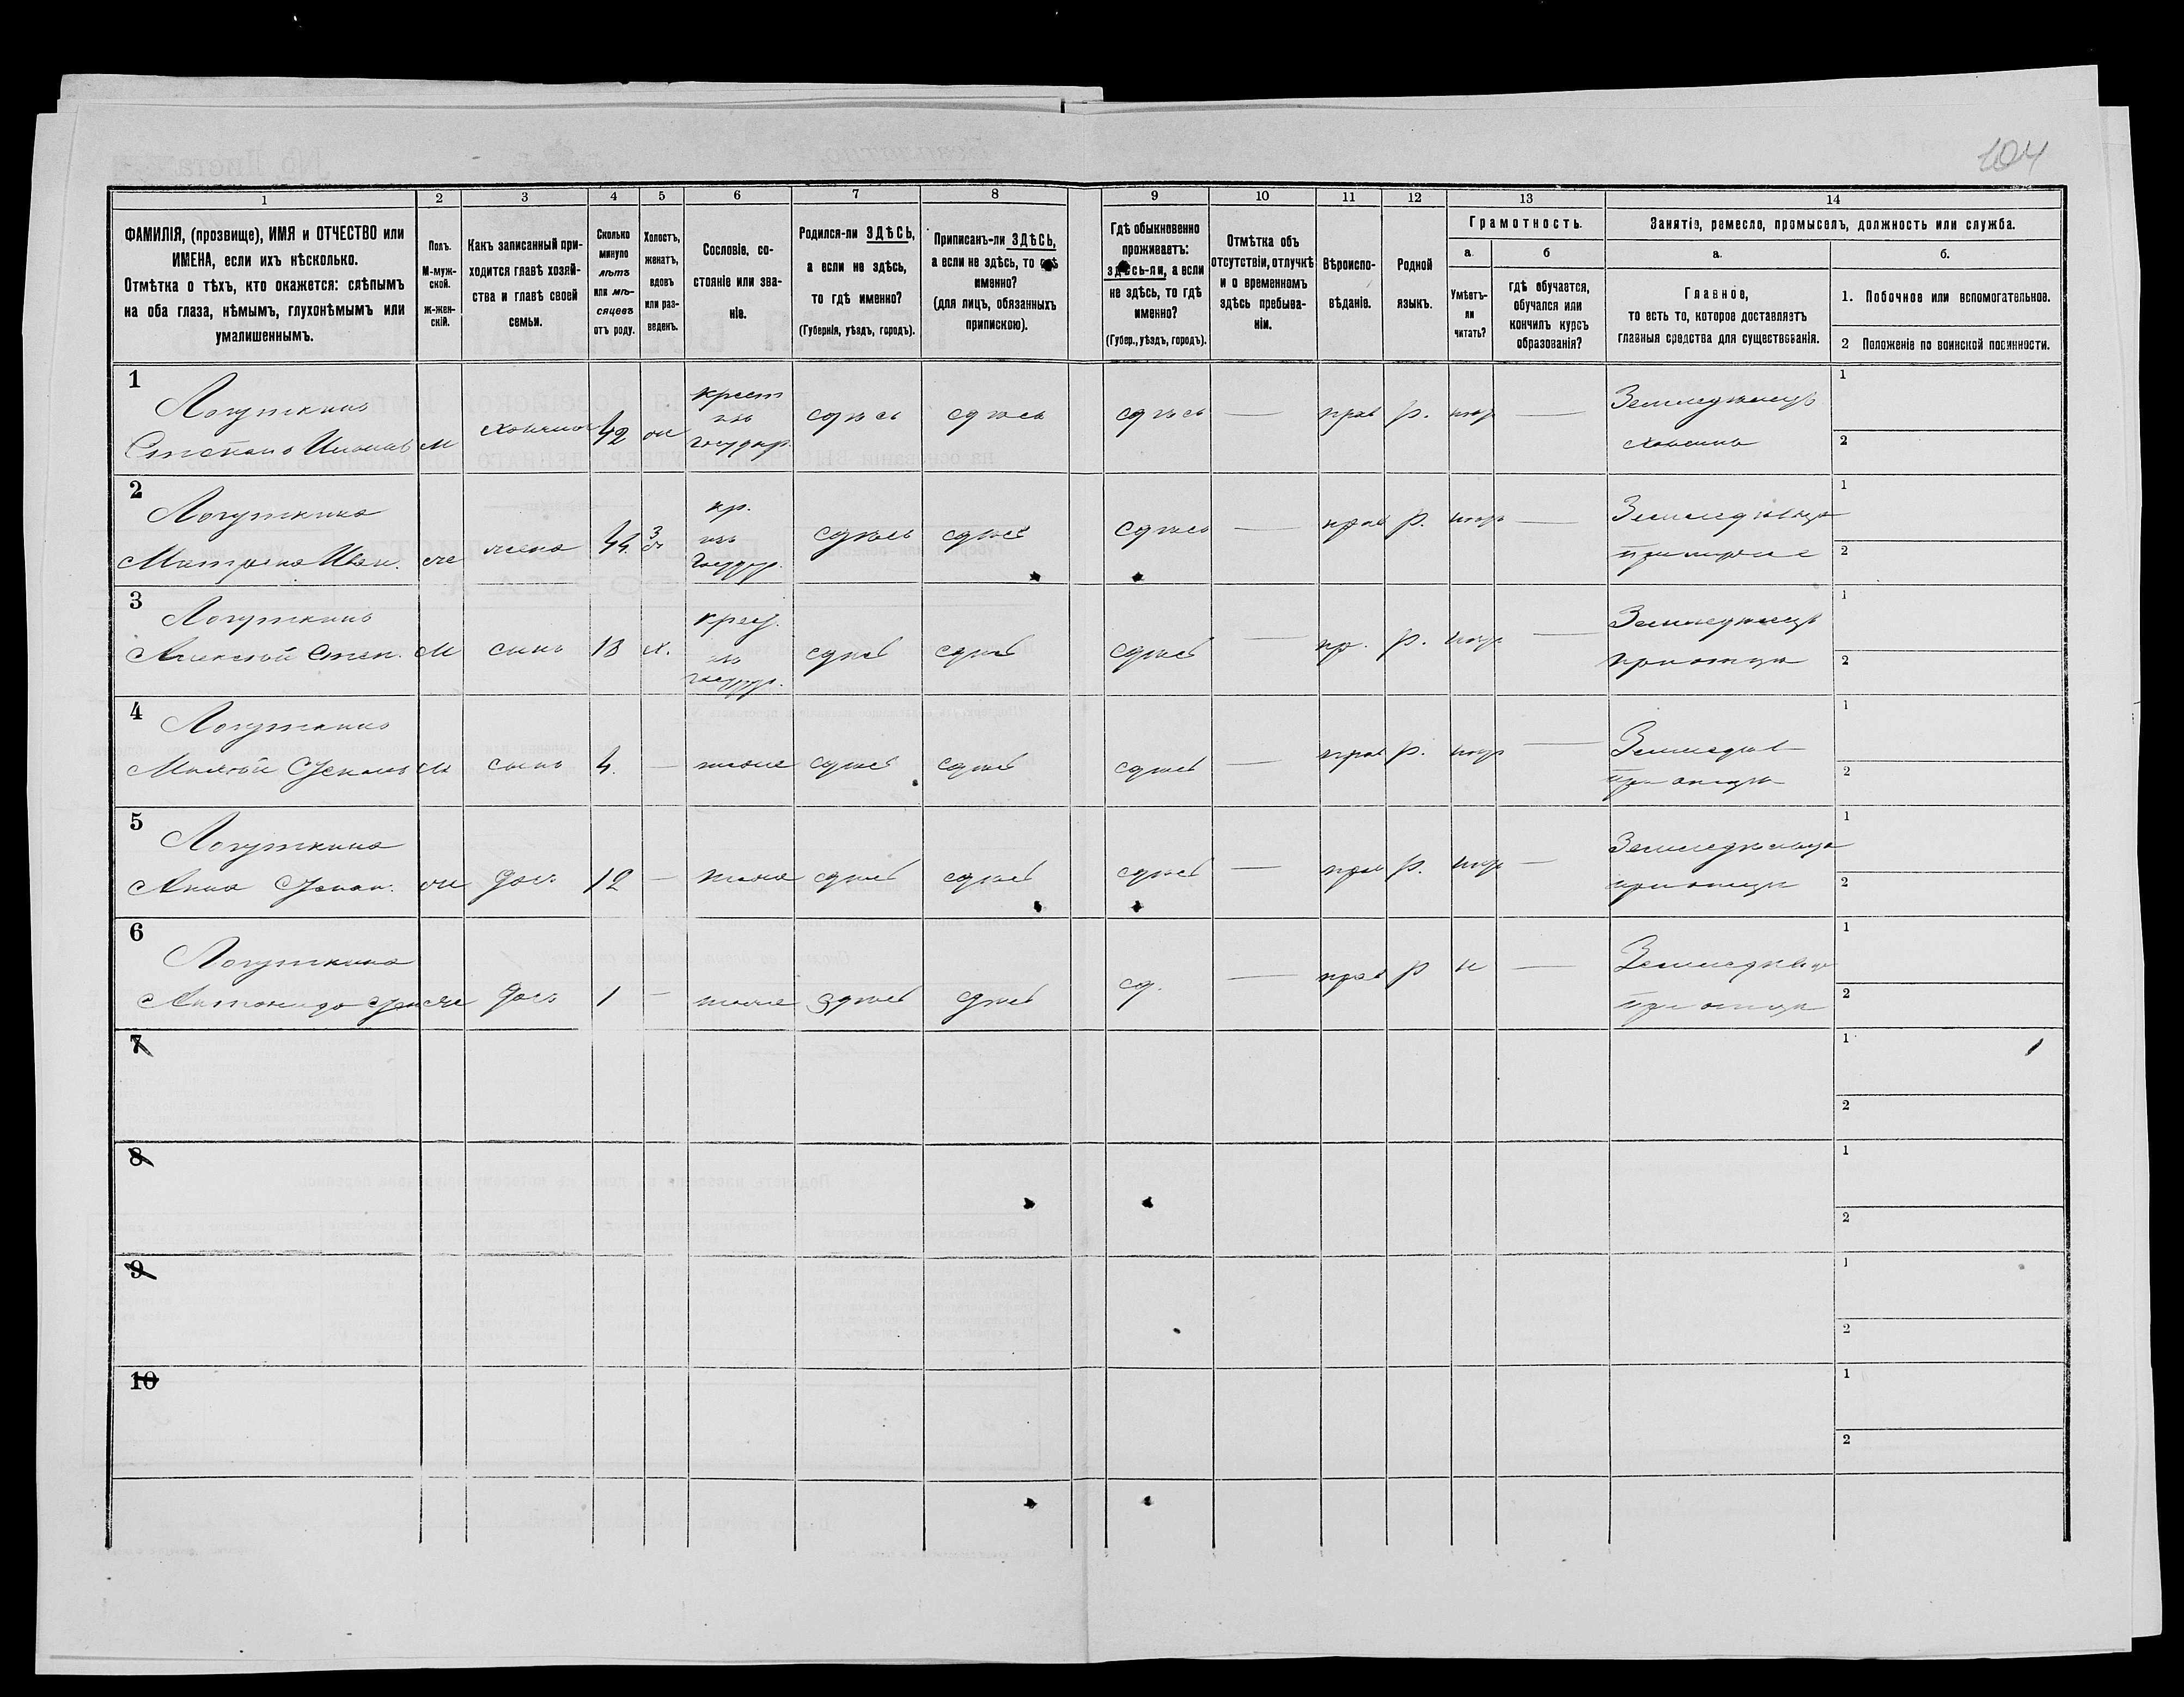 104
1 2 3 4 5 6 7 8 9 10 11 12 13 14
ФАМИЛІЯ, (прозвище), ИМЯ и ОТЧЕСТВО или
ИМЕНА, если ихъ нѣсколько.
Отмѣтка о тѣхъ, кто окажется: слѣпымъ
на оба глаза, нѣмымъ, глухонѣмымъ или
умалишеннымъ.
Полъ.
М-муж-
ской.
ж-жен-
скій.
Какъ записанный при-
ходится главѣ хозяй-
ства и главѣ своей
семьи.
Сколько
минуло
лѣтъ
или мѣ-
сяцевъ
отъ роду.
Холостъ,
женатъ,
вдовъ
или раз-
веденъ.
Сословіе, со-
стояніе или зва-
ніе.
Родился-ли ЗДѢСЬ,
а если не здѣсь,
то гдѣ именно?
(Губернія, уѣздъ, городъ).
Приписанъ-ли ЗДѢСЬ,
а если не здѣсь, то гдѣ
именно?
(для лицъ, обязанныхъ
припискою).
Гдѣ обыкновенно
проживаетъ:
здѣсь-ли, а если
не здѣсь, то гдѣ
именно?
(Губер., уѣздъ, городъ).
Отмѣтка объ
отсутствіи, отлучкѣ
и о временномъ
здѣсь пребыва-
ніи.
Вѣроиспо-
вѣданіе.
Родной
языкъ.
Грамотность.
а.
Умѣетъ-
ли
читать?
б
гдѣ обучается,
обучался или
кончилъ курсъ
образованія?
Занятіе, ремесло, промыселъ, должность или служба.
а.
Главное,
то есть то, которое доставляетъ
главныя средства для существованія.
б.
1. Побочное или вспомогательное.
2 Положеніе по воинской повинности.
1
Логуткинъ
Степанъ м хозяинъ 42 ж крест изъ государ. сдѣсь сдѣсь сдѣсь — прав р. — Земледѣлецъ
хозяинъ
1
2
2
Логуткина
Матрена Иван. ж жена 44 з кр. изъ государ. сдѣсь сдѣсь сдѣсь — прав р. — Земледѣлица
при муже
1
2
3
Логуткинъ
Алексѣй Степ. м сынъ 18 х. крест. изъ государ. сдѣсь сдѣсь сдѣсь — пр. р. — Земледѣлецъ
при отцѣ
1
2
4
Логуткинъ
м сынъ 4. — тоже сдѣсь сдѣсь сдѣсь — прав р. — Земледѣл
при отцѣ
1
2
5
Логуткина
Анна Степан. ж доч. 12 — тоже сдѣсь сдѣсь сдѣсь — прав р. — Земледѣлица
при отцѣ
1
2
6
Логуткина
ж доч. 1 — тоже здѣсь сдѣсь сд. — прав р н — Земледѣлица
при отцѣ
1
2
7
1
2
8
1
2
9
1
2
10
1
2